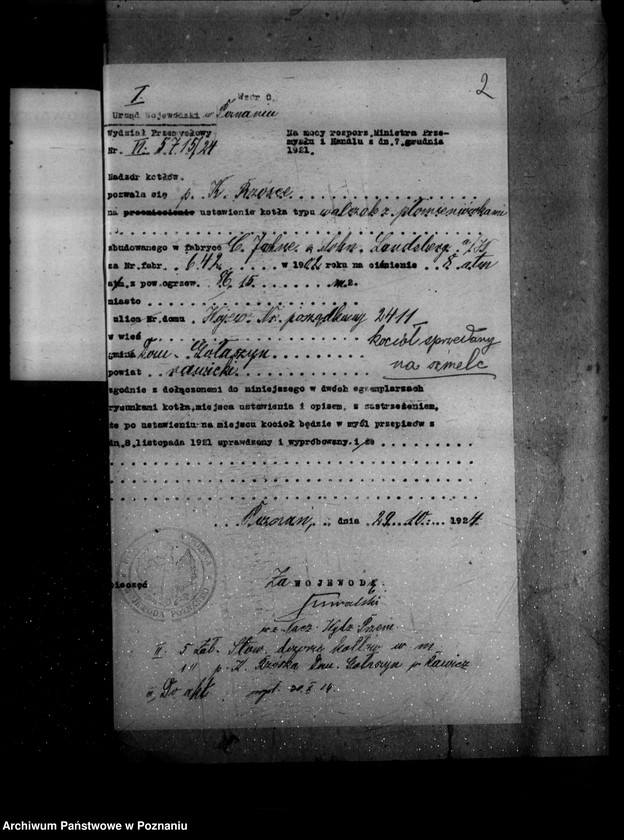 I
2
Wzór C.
Urząd Wojewódzki w Poznaniu
Wydział Przemysłowy
Nr. VI. 5715/24
Na mocy rozporz. Ministra Prze-
mysłu i Handlu z dn. 7. grudnia
1921.
Nadzór kotłów.
pozwala się p. K. Rzósce
na przeniesienie ustawienie kotła typu walczak z płomieniówkami
zbudowanego w fabryce C. Jähne & Sohn Landsberg a/
za Nr. fabr. 642 w 19 roku na ciśnienie atm
z pow. ogrzew. 15 m2.
miasto
ulica Nr. domu Wojew. Nr. porządkowy 2411
w wieś
kocioł sprzedany
gmina Dom. Gołaszyn
na szmelc
powiat rawicki
zgodnie z dołączonemi do niniejszego w dwóch egzemplarzach
rysunkami kotła, miejsca ustawienia i opisem, z zastrzeżeniem,
że po ustawieniu na miejscu kocioł będzie w myśl przepisów z
dn. 8. listopada 1921 sprawdzony i wypróbowany. i że
Poznań, dnia 29. 10. 1924
pieczęć
Za WOJEWODĘ
w z. Nacz. Wydz. Przem
II. 5 Stow. dozoru kotłów w m.
p. K. Rzóska Dom. Gołaszyn p. Rawicz
Do akt
Archiwum Państwowe w Poznaniu